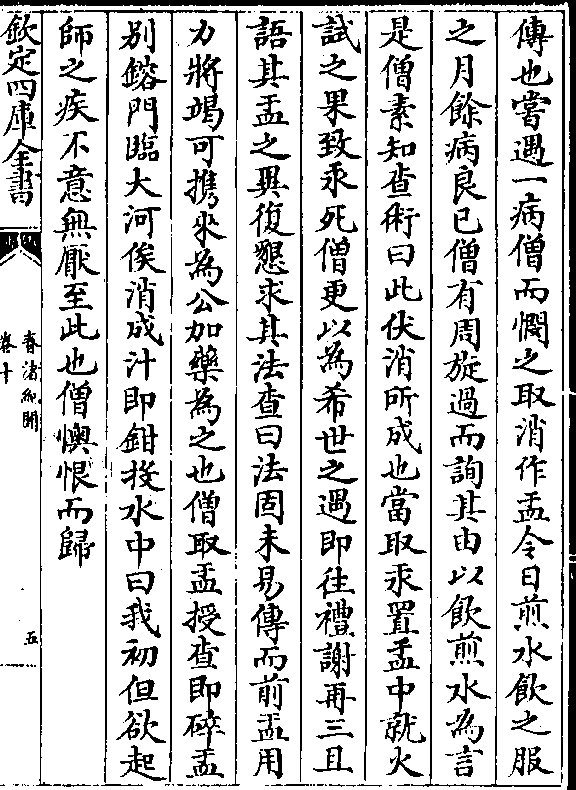 傳也嘗遇一病僧而憫之取消作盂令日煎水飲之服
之月餘病良已僧有周旋過而詢其由以飲煎水為言
是僧素知查術曰此伏消所成也當取汞置盂中就火
試之果致汞死僧更以為希世之遇即往禮謝再三且
語其盂之異復懇求其法查曰法固未易傳而前盂用
力將竭可擕來為公加藥為之也僧取盂授查即碎盂
别鎔門臨大河俟消成汁即鉗投水中曰我初但欲起
師之疾不意無厭至此也僧懊恨而歸
欽定四庫全書
春渚紀聞
卷十
五